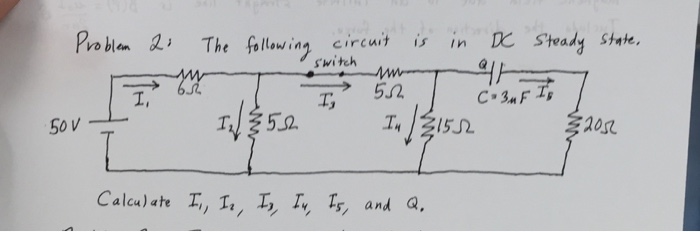 Problem 2: The following circuit is in DC Steady State.
switch
Q
I₁ 6Ω I₃ 5Ω C=3μF I₅
50V I₂ 5Ω I₄ 15Ω 20Ω
Calculate I₁, I₂, I₃, I₄, I₅, and Q.